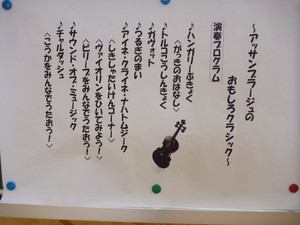 ～アッサンブラージュの
おもしろクラシック～
演奏プログラム
♪ハンガリーぶきょく
＜がっきのおはなし＞
♪トルココうしんきょく
♪ガヴォット
♪つるぎのまい
♪アイネ・クライネ・ナハトムジーク
＜しきしゃたいけんコーナー＞
♪ヴァイオリンをひいてみよう！
＜ビリーブをみんなでうたおう！＞
♪サウンド・オブ・ミュージック
♪チャルダッシュ
＜こうかをみんなでうたおう！＞